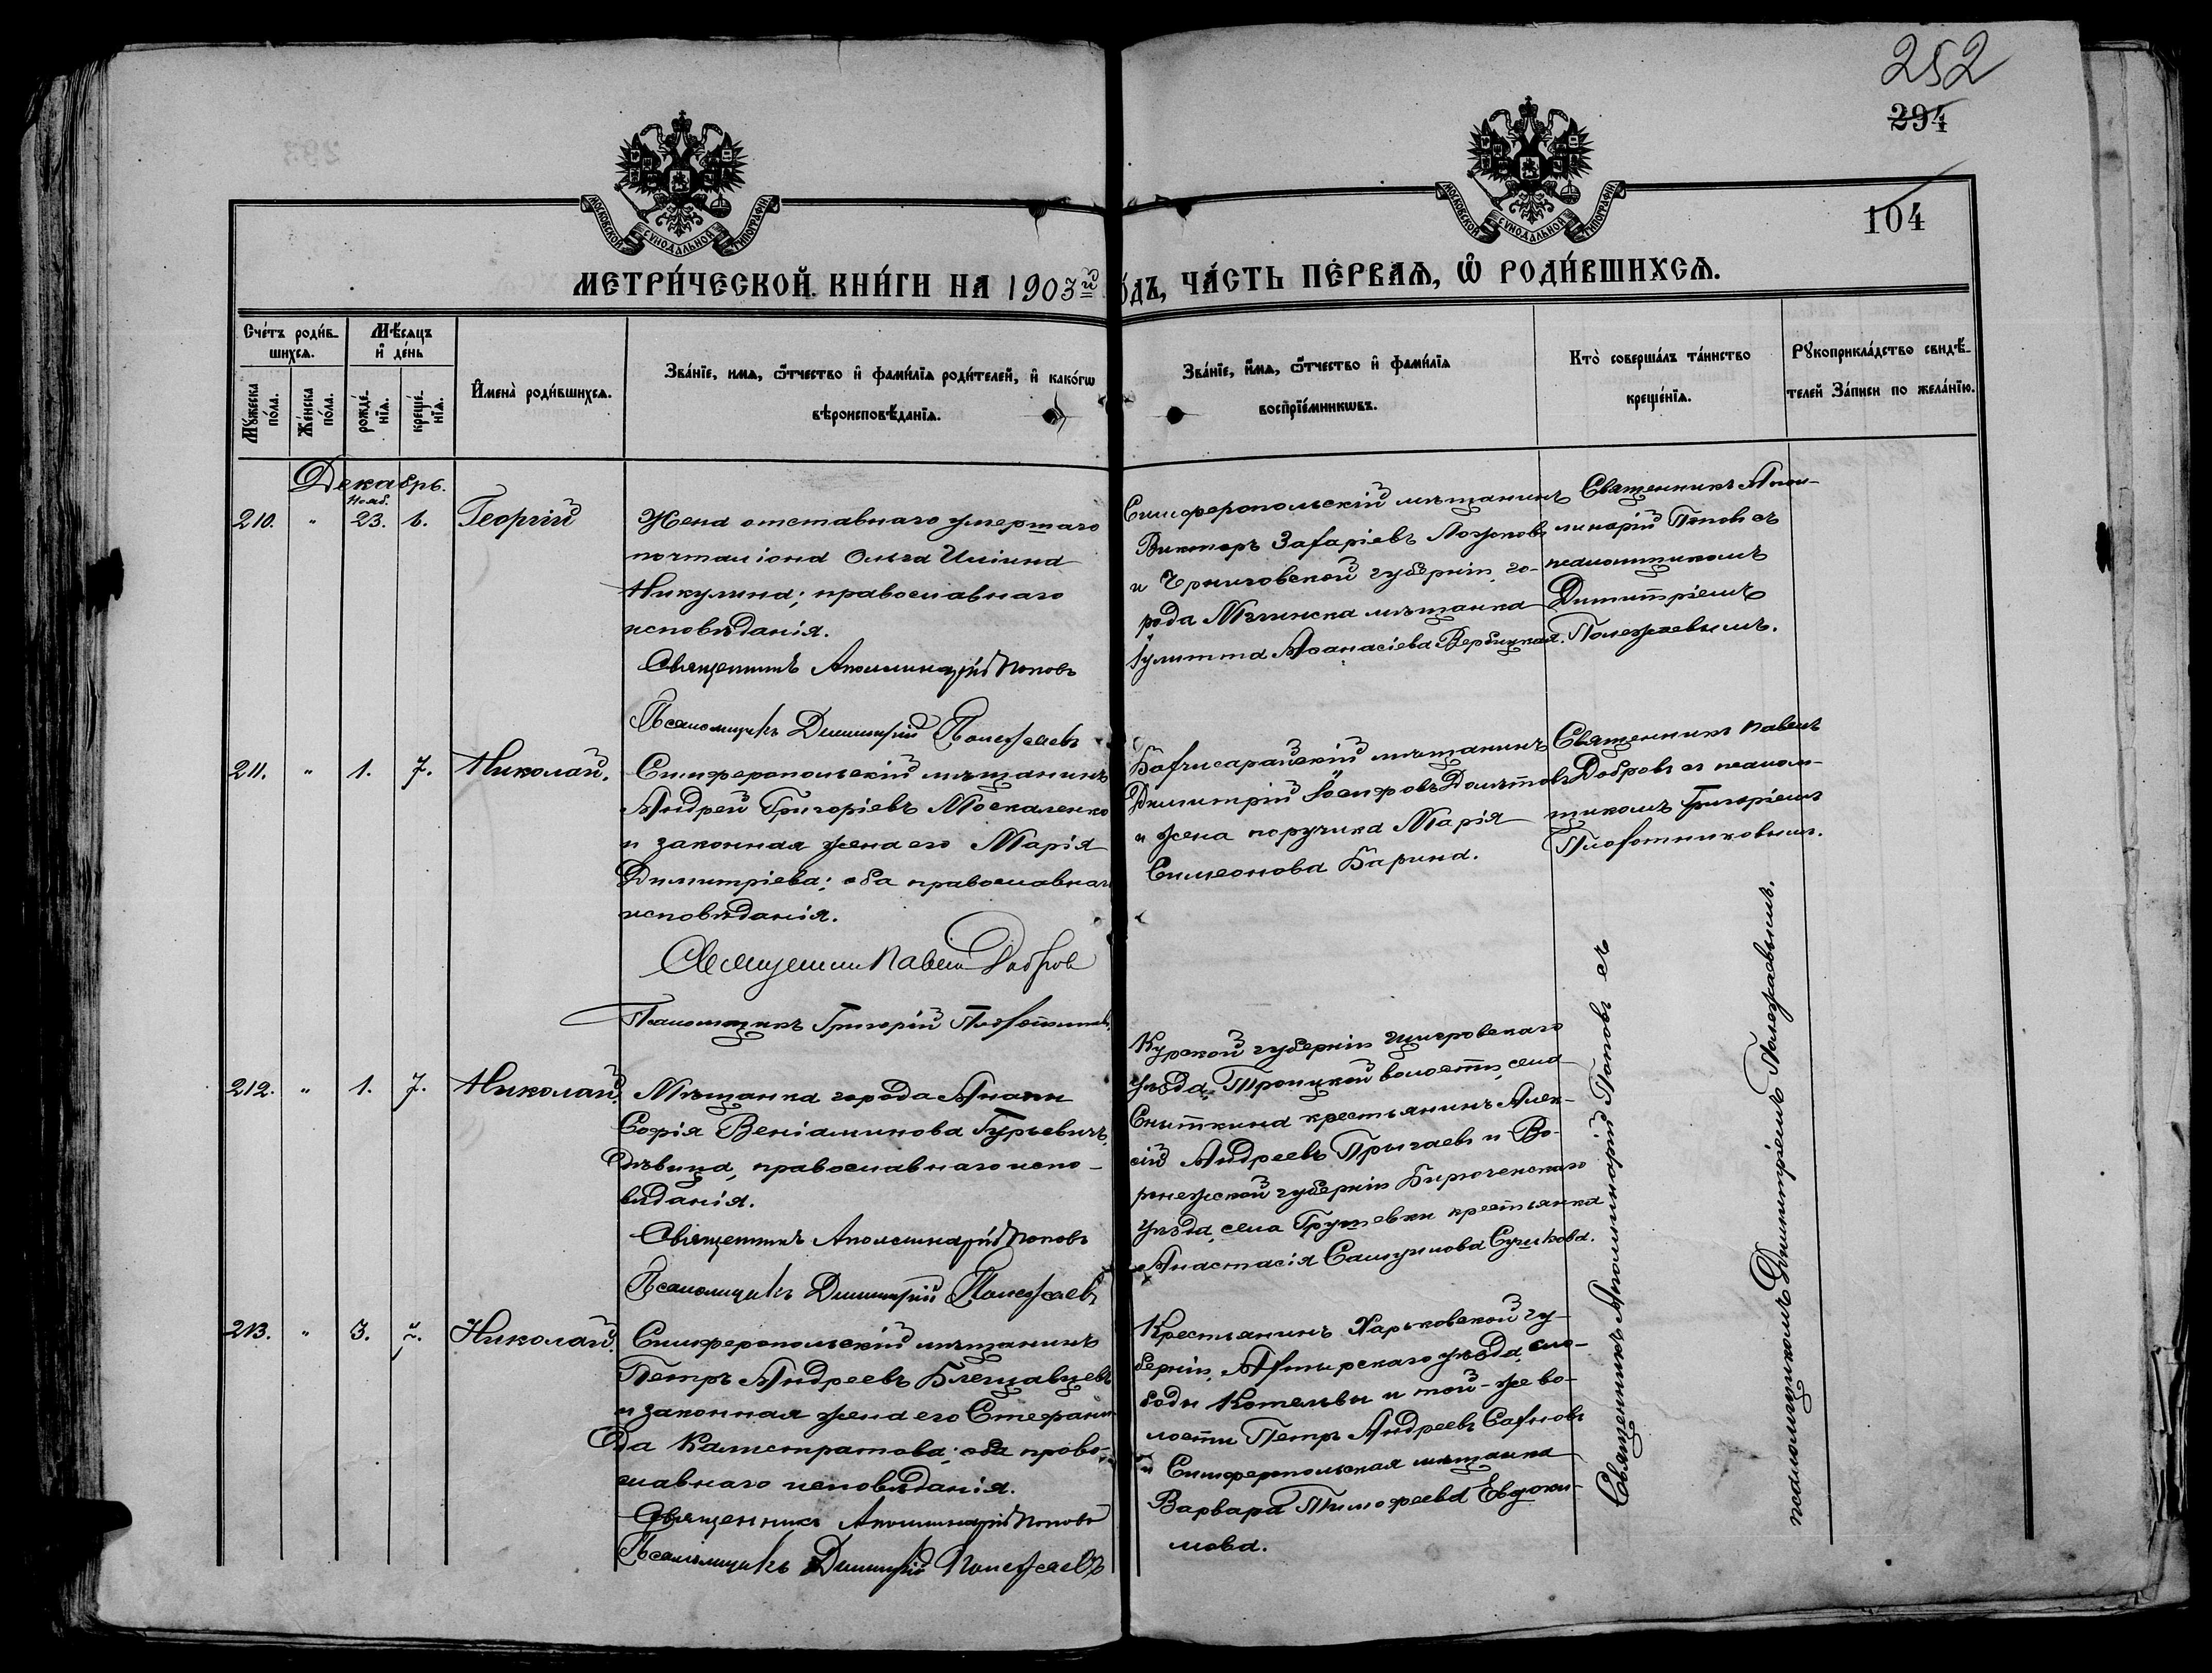 252
294
104
МОСКОВСКОЙ СУНОДАЛЬНОЙ ТИПОГРАФІИ
МОСКОВСКОЙ СУНОДАЛЬНОЙ ТИПОГРАФІИ
МЕТРИ́ЧЕСКОЙ КНИ́ГИ НА 1903й
ѻ́дъ, ЧА́СТЬ ПЕ́РВАѦ, Ѡ҆ РОДИ́ВШИХСѦ.
Сче́тъ роди́в-
шихсѧ.
Мѣ́сѧцъ
и҆ де́нь
Мꙋ́жеска по́ла.
Же́нска по́ла.
рожде́-
нїѧ.
креще́-
нїѧ.
И҆мена̀ роди́вшихсѧ.
Зва́нїе, имѧ, ѻ҆́тчество и҆ фами́лїѧ роди́телей, и҆ како́гѡ
вѣроисповѣ́данїѧ.
Зва́нїе, и҆́мѧ, ѻ҆́тчество и҆ фами́лїѧ
воспрїе́мникѡвъ.
Кто̀ соверша́лъ та́инство
креще́нїѧ.
Рꙋкоприкла́дство свидѣ́-
телей За́писи по жела́нїю.
Декабрь.
Нояб.
210. " 23. 6. Георгій
Жена отставнаго умершаго
почталіона Ольга Иліина
Никулина; православнаго
исповѣданія.
Священникъ Аполлинарій Поповъ
Псаломщикъ Димитрій Полежаевъ
Симферопольскій мѣщанинъ
Викторъ Захаріевъ
и Черниговской губерніи, го-
рода Мглинска мѣщанка
Іулитта Аѳанасіева Вербицкая.
Священникъ Апол-
линарій Поповъ съ
псаломщикомъ
Димитріемъ
Полежаевымъ.
211. " 1. 7. Николай.
Симферопольскій мѣщанинъ
Андрей Григоріевъ Москаленко
и законная жена его Марія
Димитріева; оба православнаго
исповѣданія.
Священникъ Павелъ Добровъ
Псаломщикъ Григорій Плохотниковъ
Бахчисарайскій мѣщанинъ
Димитрій Іосифовъ
и жена поручика Марія
Симеонова Барина.
Священникъ Павелъ
Добровъ съ псалом-
щикомъ Григоріемъ
Плохотниковымъ.
212. " 1. 7. Николай.
Мѣщанка города Анапы
Софія Веніаминова Гурьевичъ,
дѣвица, православнаго испо-
вѣданія.
Священникъ Аполлинарій Поповъ
Псаломщикъ Димитрій Полежаевъ
Курской губерніи Щигровскаго
уѣзда, Троицкой волости, села
Сниткина крестьянинъ Алек-
сій Андреевъ и Во-
ронежской губерніи Бирюченскаго
уѣзда, села Грушевки крестьянка
Анастасія Самуилова Сушкова.
Священникъ Аполлинарій Поповъ съ
псаломщикомъ Димитріемъ Полежаевымъ.
213. " 3. 7. Николай.
Симферопольскій мѣщанинъ
Петръ Андреевъ Блещавцевъ
и законная жена его Стефани-
да Калистратова; оба право-
славнаго исповѣданія.
Священникъ Аполлинарій Поповъ
Псаломщикъ Димитрій Полежаевъ
Крестьянинъ Харьковской гу-
берніи, Ахтырскаго уѣзда, сло-
боды Котельвы и той-же во-
лости Петръ Андреевъ Сахновъ
и Симферопольская мѣщанка
Варвара Тимофеева Евдоки-
мова.